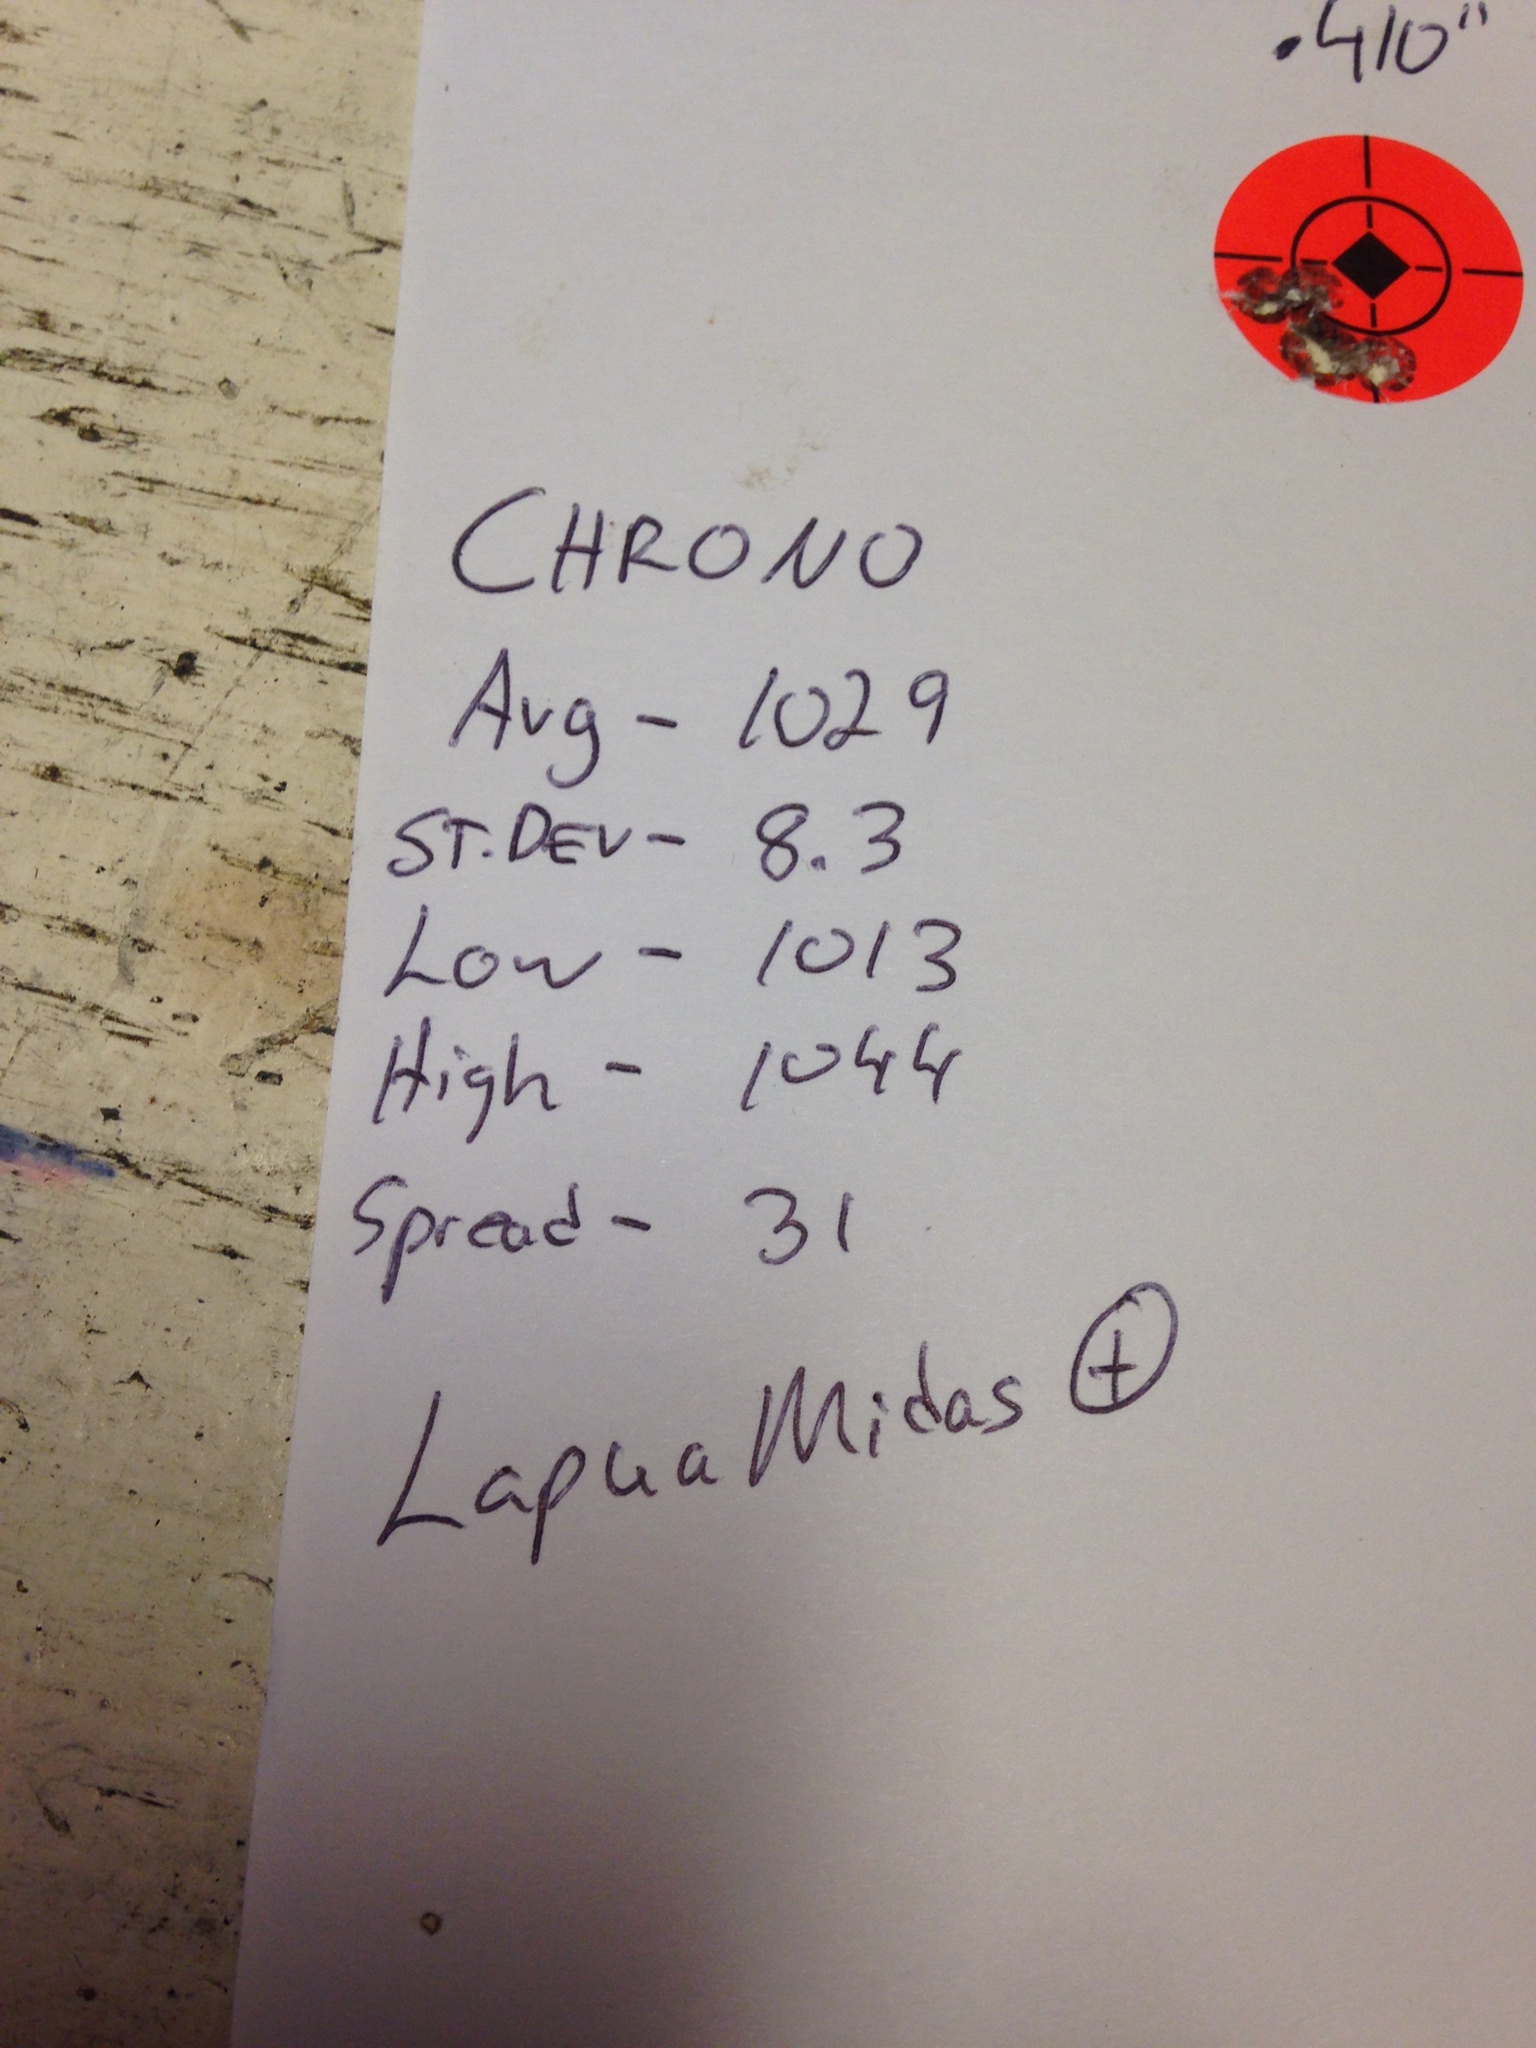 .410"
CHRONO
Avg - 1029
ST.DEV - 8.3
Low - 1013
High - 1044
Spread - 31
Lapua Midas +